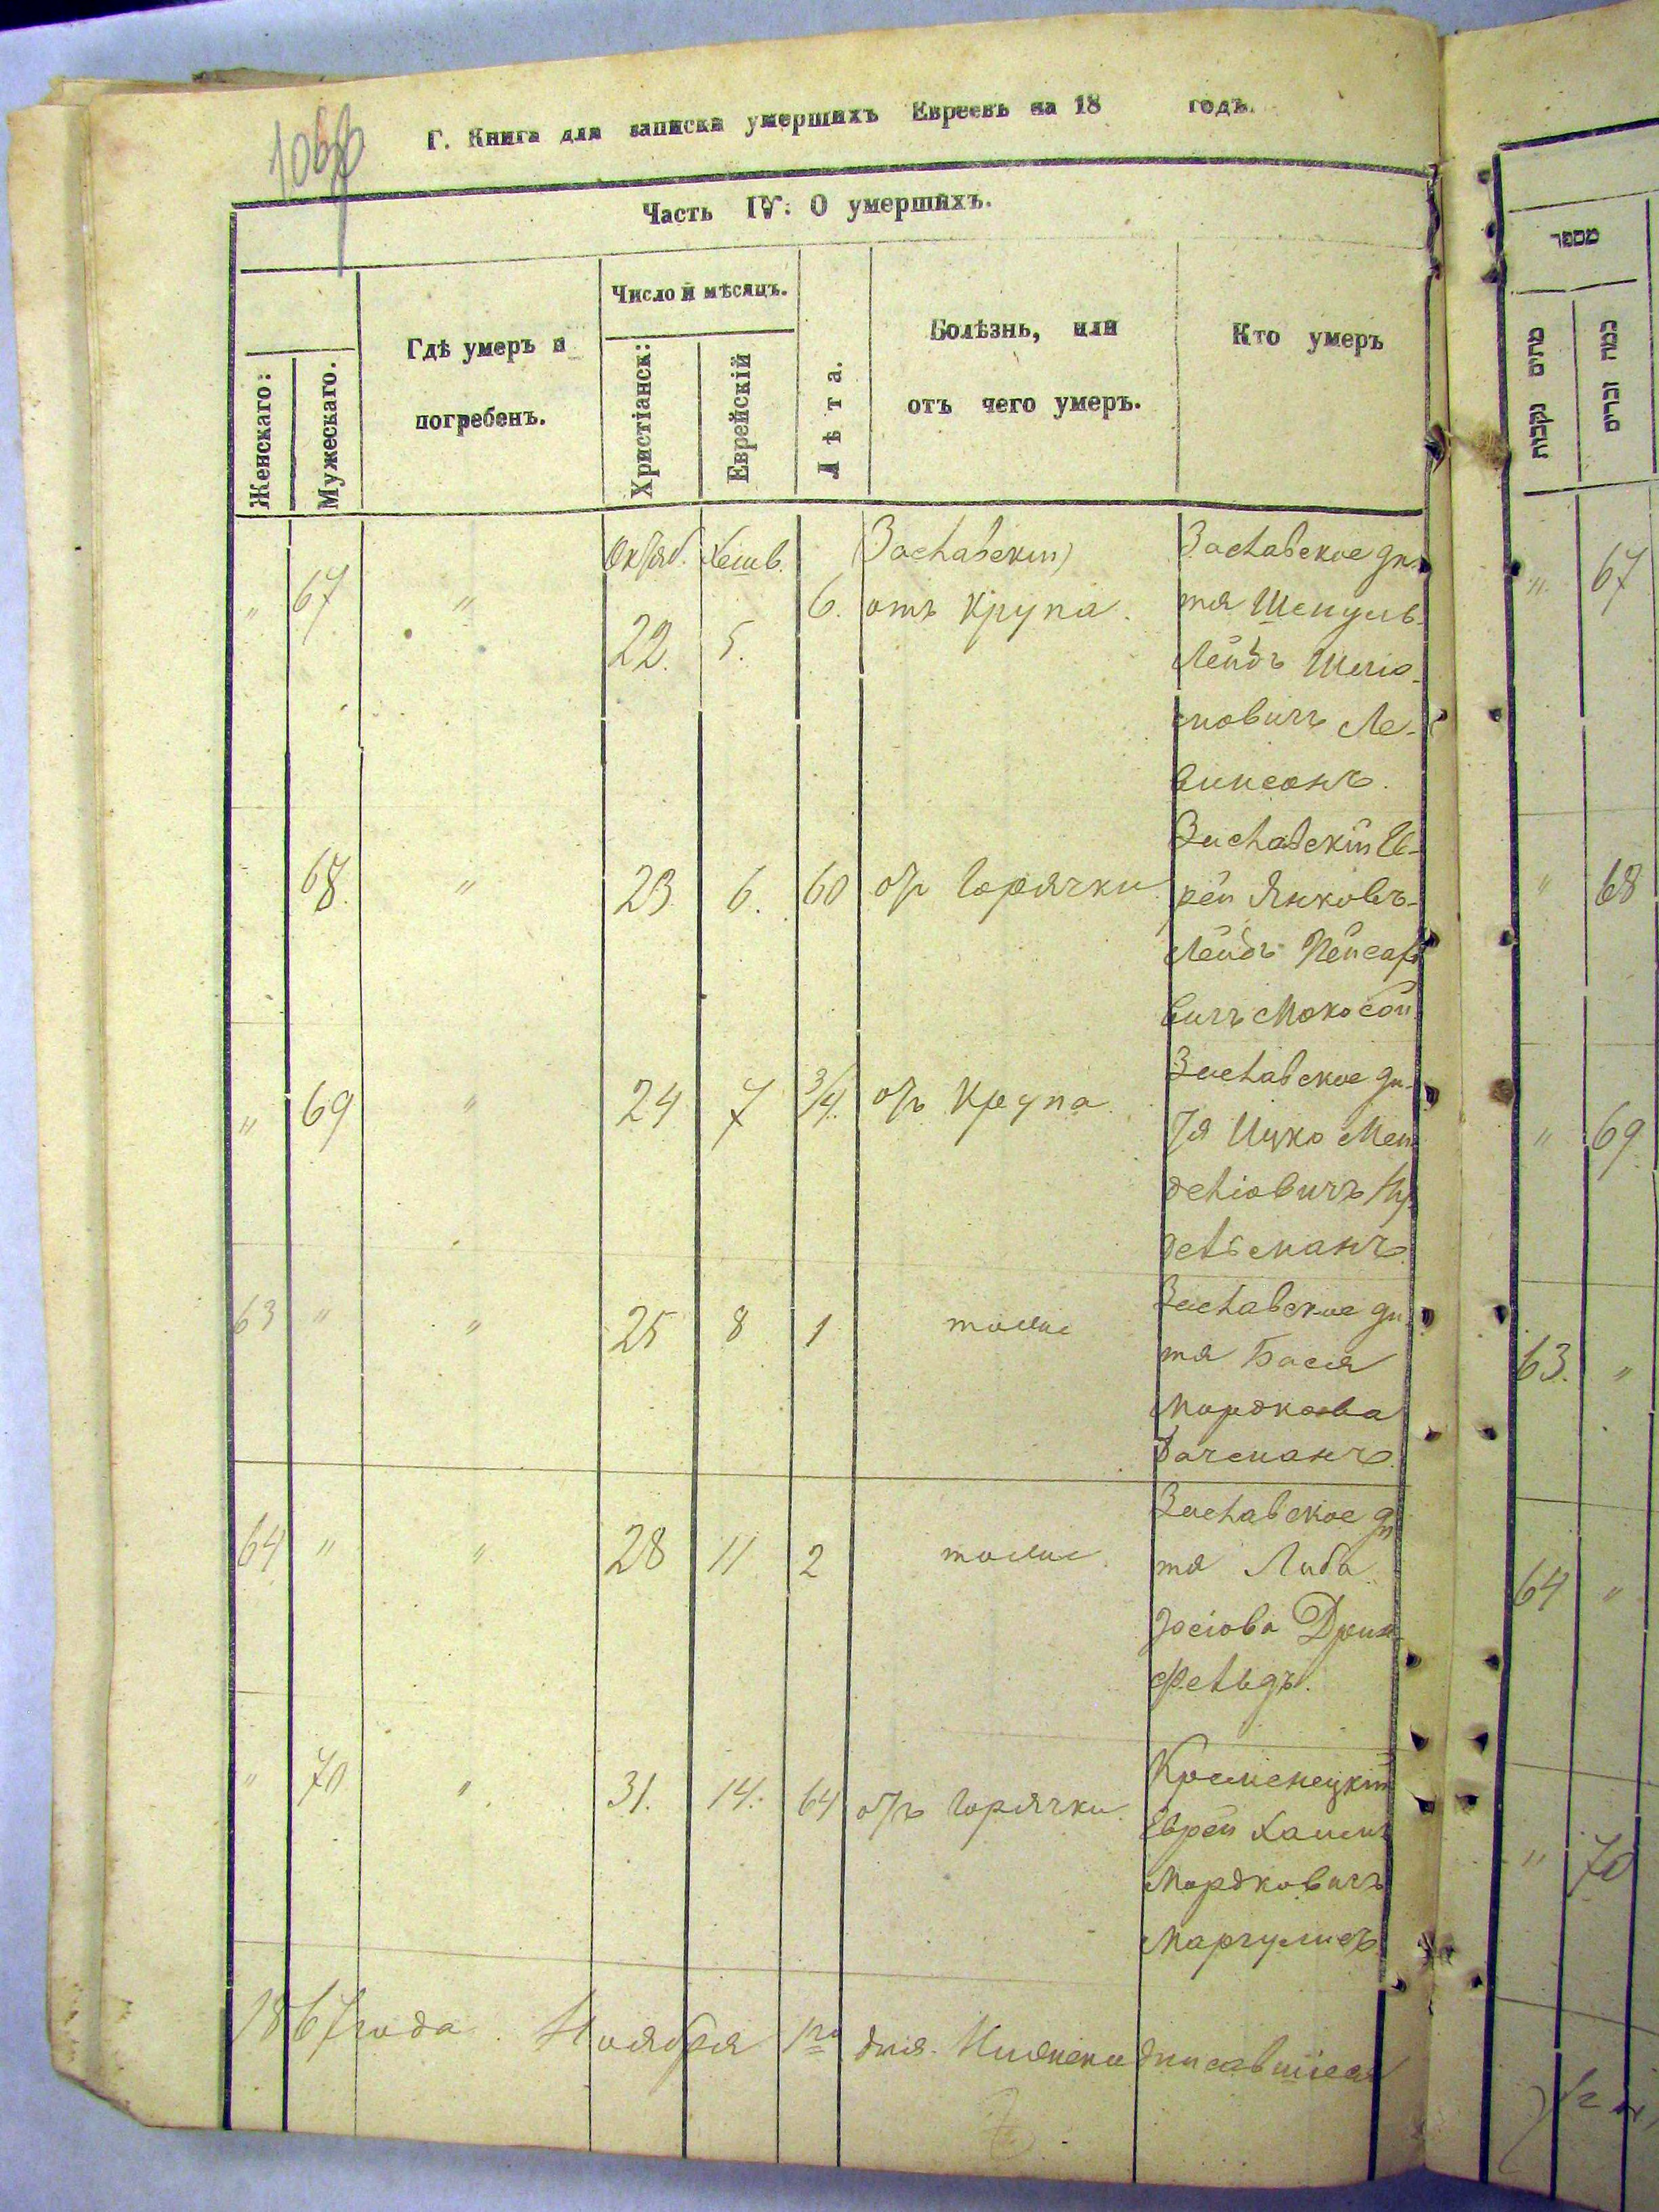 Г. Книга для записки умершихъ Евреевъ на 18 годъ.
Часть IV. О умершихъ.
Женскаго:
Мужескаго.
Гдѣ умеръ и
погребенъ.
Число и мѣсяцъ.
Христіанск:
Еврейскій
Лѣта.
Болѣзнь, или
отъ чего умеръ.
Кто умеръ
Октяб. Хешв. Заславскій
" 67 " 22. 5. 6. отъ Крупа.
Заславское ди-
тя
Лейбъ Шліо-
мовичъ Ле-
винсонъ.
68. " 23 6. 60 отъ Горячки
Заславскій Ев-
рей Янковъ-
Лейбъ
вичъ
" 69 " 24 7 3/4. отъ Крупа.
Заславское ди-
тя Ицко Мен-
деліовичъ
дельманъ.
63 " " 25 8 1 тоже
Заславское ди-
тя Бася
Мордкова
64 " " 28 11 2 тоже
Заславское ди
тя Либа
Іосіова
фельдъ.
" 70 " 31. 14. 64 отъ Горячки.
Кременецкій
Еврей Хаимъ
Мордковичъ
Маргулисъ
1867 года Ноября 1го дня.
מספר
מתים נקבות
כמה זכרים
" 67
" 68
" 69
63. "
64 "
" 70